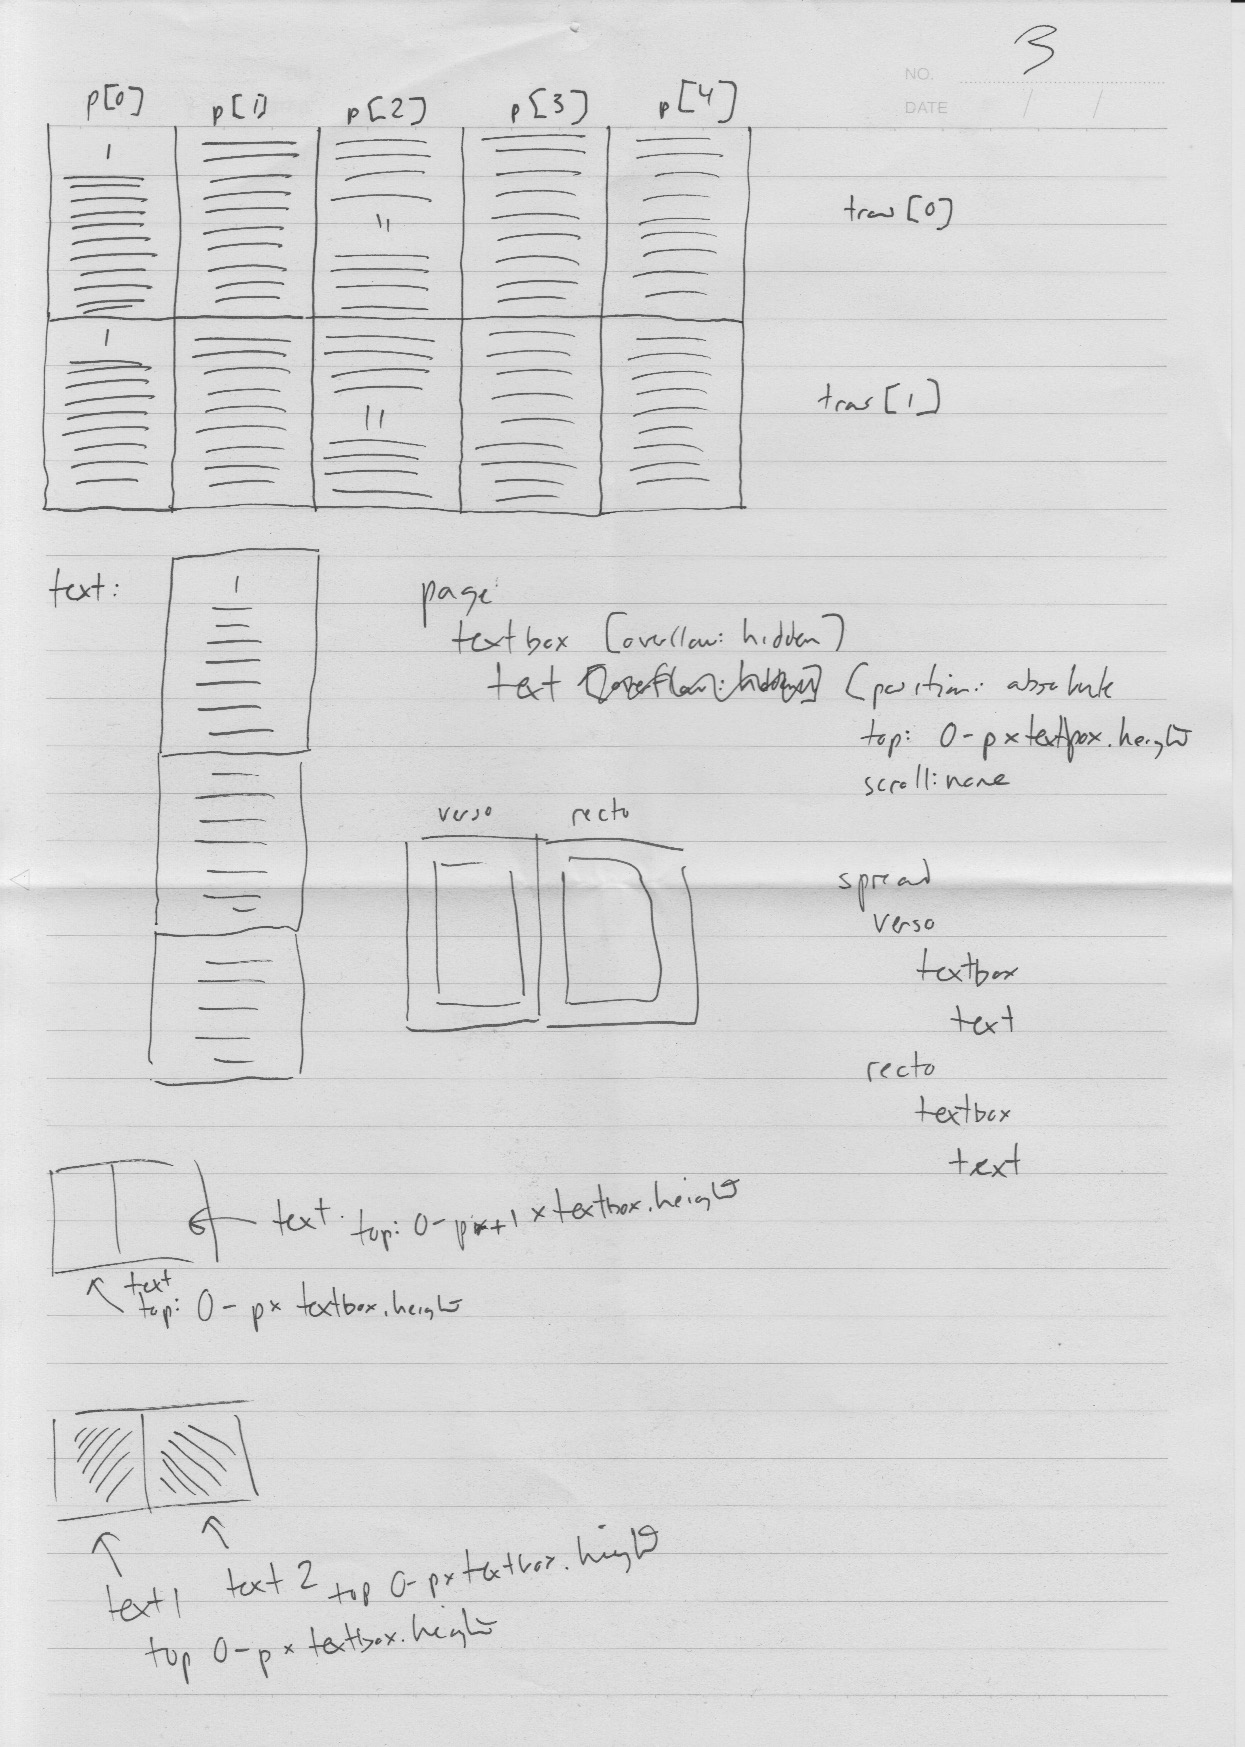 3
NO.
DATE / /
p[0] p[1] p[2] p[3] p[4]
1
11
tran[0]
1
11
tran[1]
text:
1
page:
textbox [overflow: hidden]
text [overflow: hidden] [position: absolute
top: 0 - p x textbox.height
scroll: none
verso recto
spread
verso
textbox
text
recto
textbox
text
text. top: 0 - p+1 x textbox.height
text
top: 0 - p x textbox.height
text 2 top 0 - p x textbox.height
text 1
top 0 - p x textbox.height